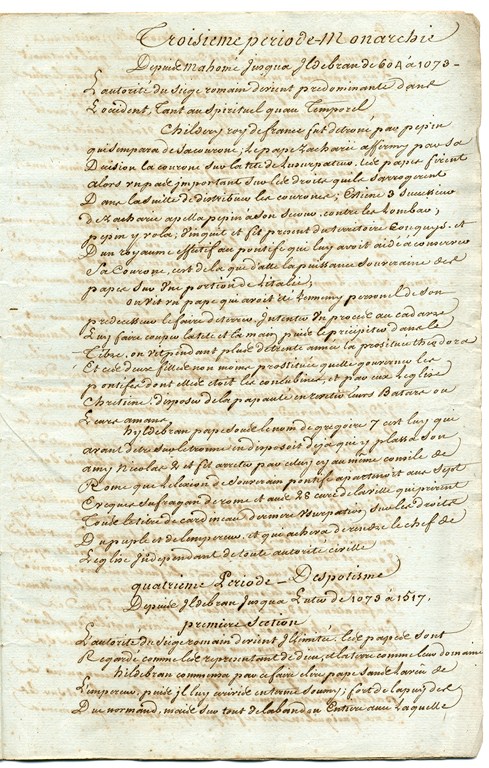 Troisieme periode - Monarchie
Depuis Mahomé Jusqua Jldebran de 604 à 1073 -
L'autorité du siege romain devient predominante dans
L'occident, Tant au spirituel quau Temporel
Childery roy de france fut detroné par pepin
qui sempara de sa courone; Le pape zacharie affermy par sa
Decision la courone sur la tete de Lusurpateur, Les papes firent
alors un pas important sur les droits quils sarrogerent
Dans la suite de distribuer les courones; Etiene 3 successeur
de zacharie apella pepin a son secour contre les Lombars,
pepin y vola; Vinquit et fit present du territoire Conquis, et
D'un royaume effectif au pontife qui luy avoit aidé a conserver
Sa Courone, cest de la que datte la puissance souveraine des
papes sur une portion de l'italie,
on vit un pape qui avoit été Lennemy personel de son
predecesseur le faire deterrer Intenter un procès au cadavre
Luy faire couper la tete et la main puis le précipiter dans le
Tibre, on vit pendant plus de trente année la prostituée theodora
Et ces deux filles non moins prostituée quelle gouverner les
pontifes dont elles etoit les concubines, et par eux l'eglise
Chretiene; disposer de la papauté en faveur leurs Batars ou
Leurs amans,
hyldebran pape sous le nom de gregoire 7 cest luy qui
avant detre sur le trone en disposoit deja que y plassa son
amy Nicolas 2 et fit arreter par celuy cy au même consile de
Rome que l'election de souverain pontife apartiendroit aux sept
Eveques sufragan de rome et aux 28 curé de la ville qui prirent
Tous le titre de cardineau derniere usurpation sur les droits
Du peuple et de l'empereur, et que acheva de rendre le chef de
L'eglise Independant de toute autorité civille
quatrieme Periode - Despotisme
Depuis Jldebran Jusqua Luter de 1073 à 1517,
premiere section
L'autorité du siege romain devient Jlimitée, les papes sont
Regardé comme les representant de dieu, et la terre comme leur domaine
hildebran commensa par ce faire elire pape sans l'aveu de
L'empereur, puis jl luy arriva Souvent; fort de lapuy des
Duc normand, mais sur tout de labandon Entiere aux Laquelle